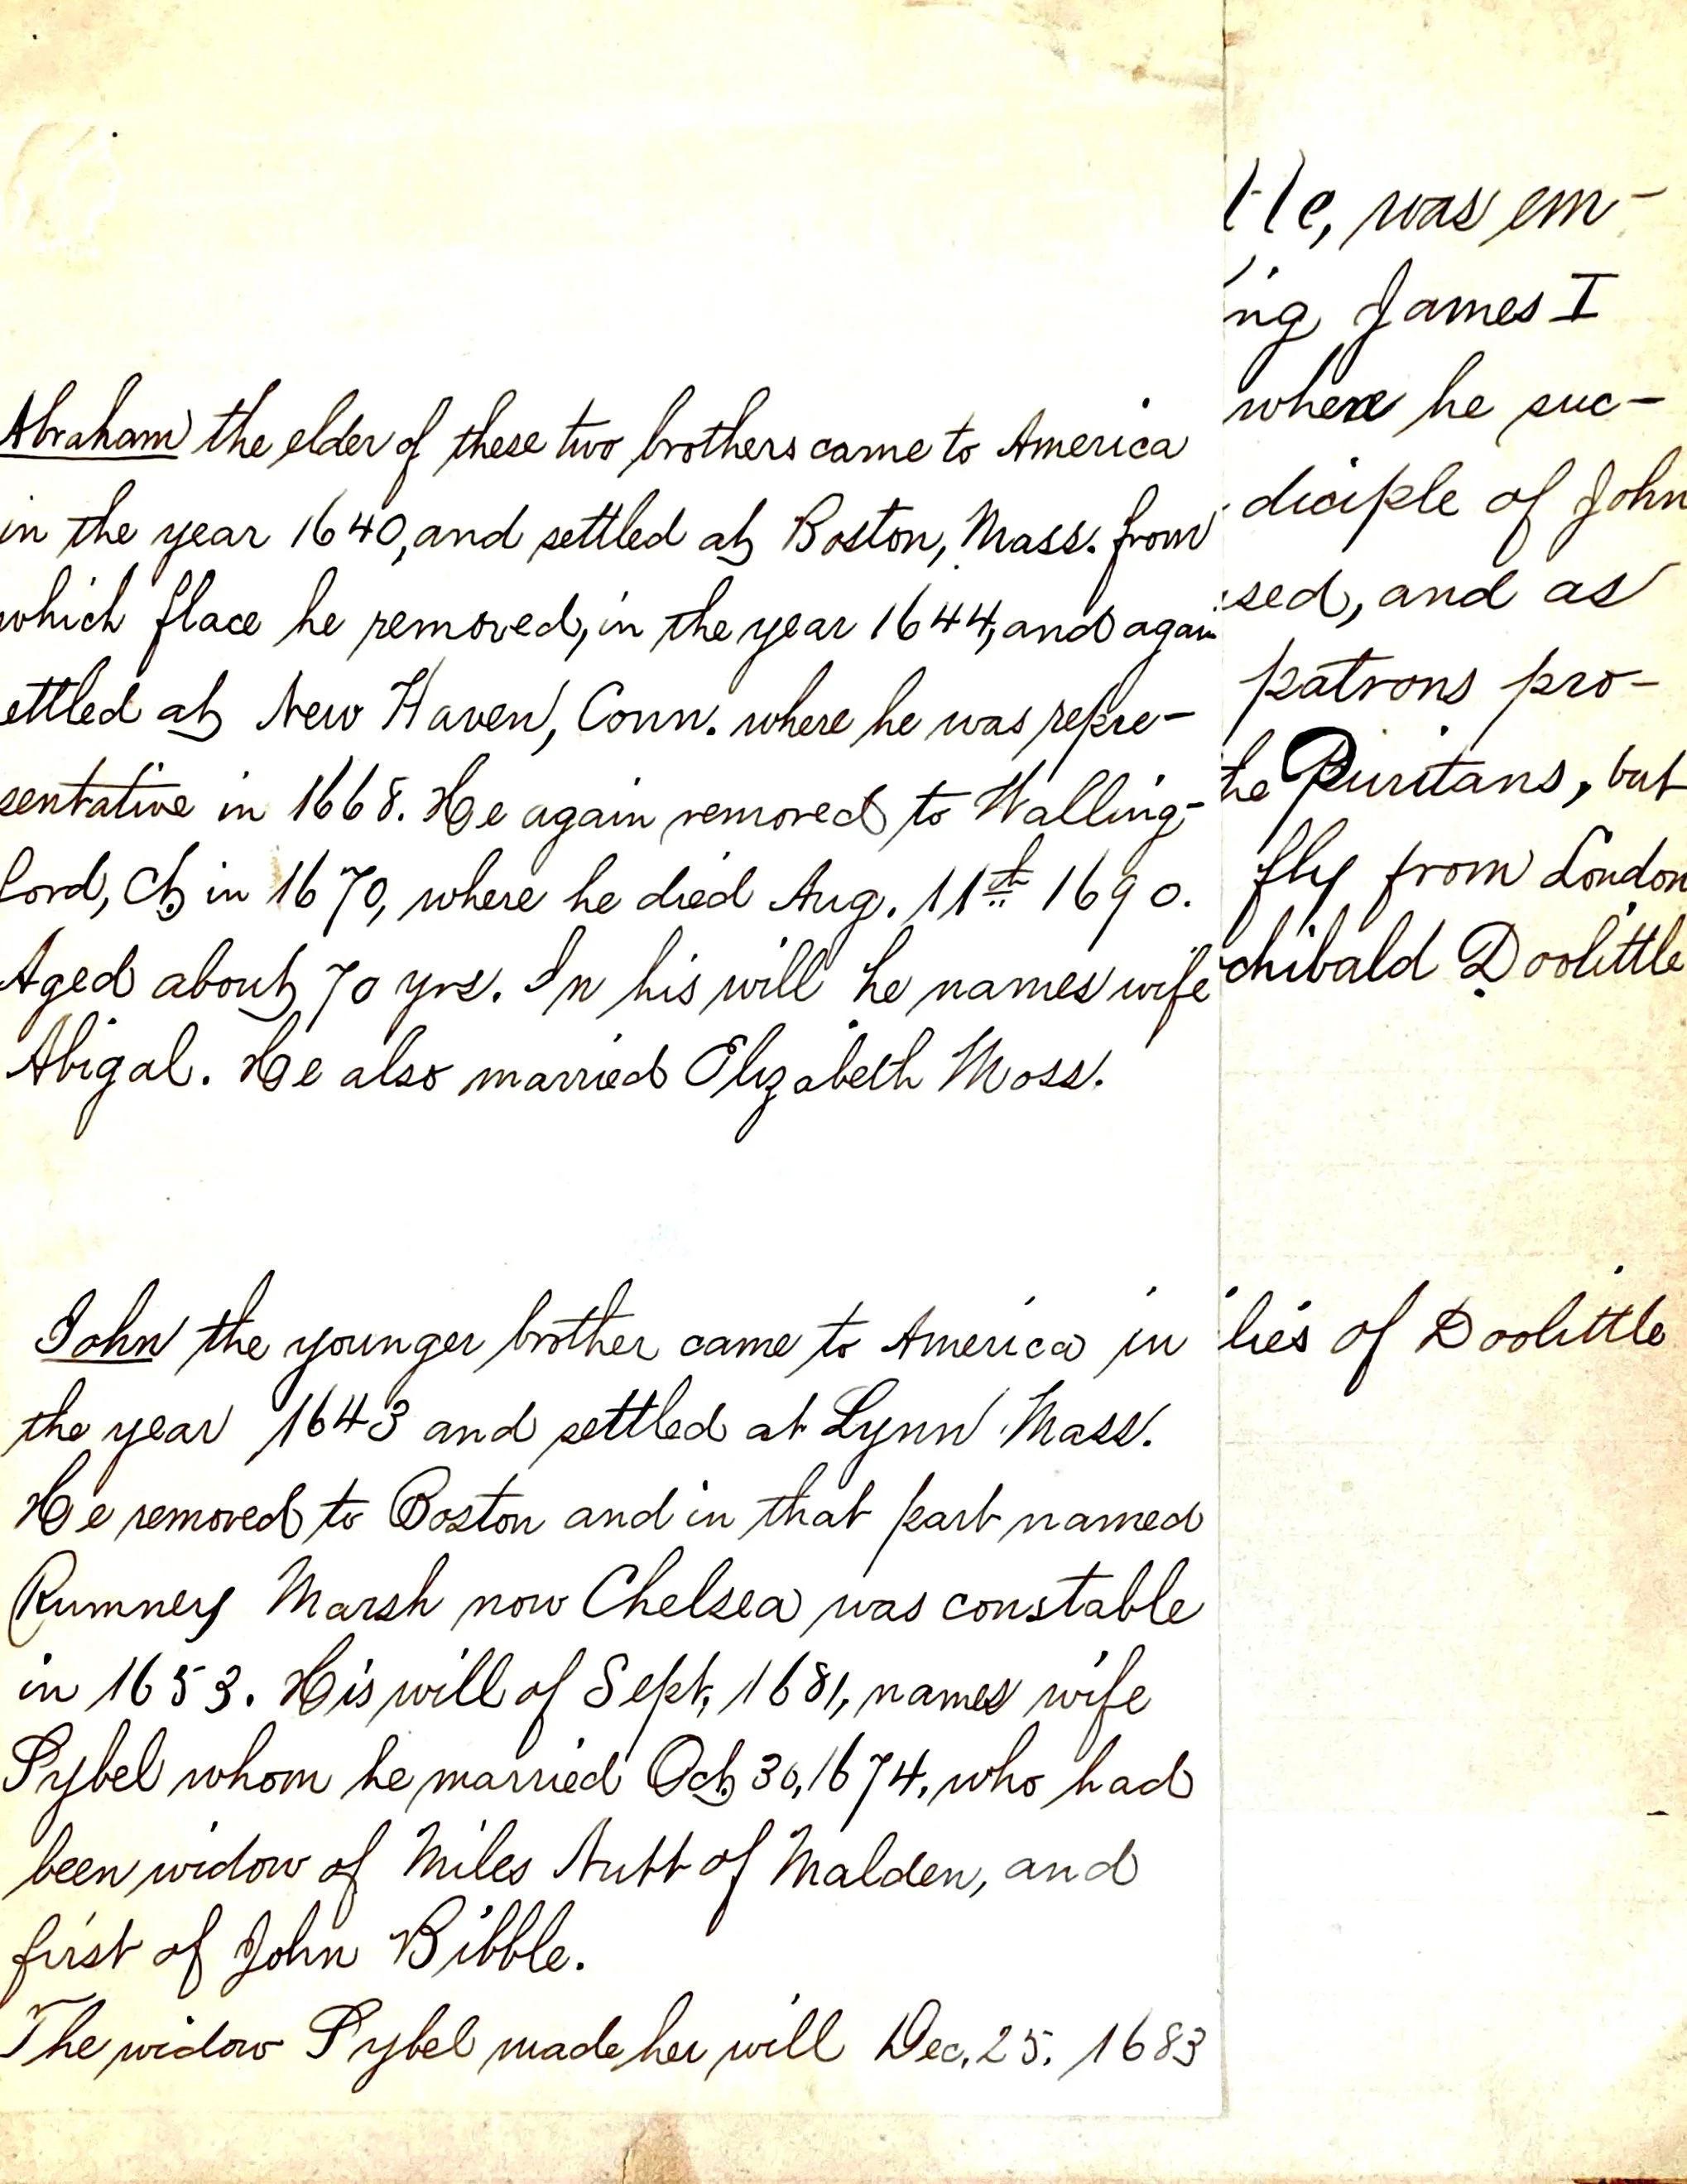 Abraham the elder of these two brothers came to America
in the year 1640, and settled at Boston, Mass. from
which place he removed, in the year 1644, and again
ettled at New Haven, Conn. where he was repre-
sentative in 1668. He again removed to Walling-
ford, Ct, in 1670, where he died Aug. 11th 1690.
Aged about 70 yrs. In his will he names wife
Abigal. He also married Elizabeth Moss.
John the younger brother came to America in
the year 1643 and settled at Lynn Mass.
He removed to Boston and in that part named
Rumney Marsh now Chelsea was constable
in 1653. His will of Sept, 1681, names wife
Sybel whom he married Oct. 30, 1674, who had
been widow of Miles Nutt of Malden, and
first of John Bibble.
The widow Sybel made her will Dec. 25. 1683
ttle, was em-
ing James I
where he suc-
diciple of John
sed, and as
patrons pro-
he Puritans, but
fly from London
chibald Doolittle
lies of Doolittle